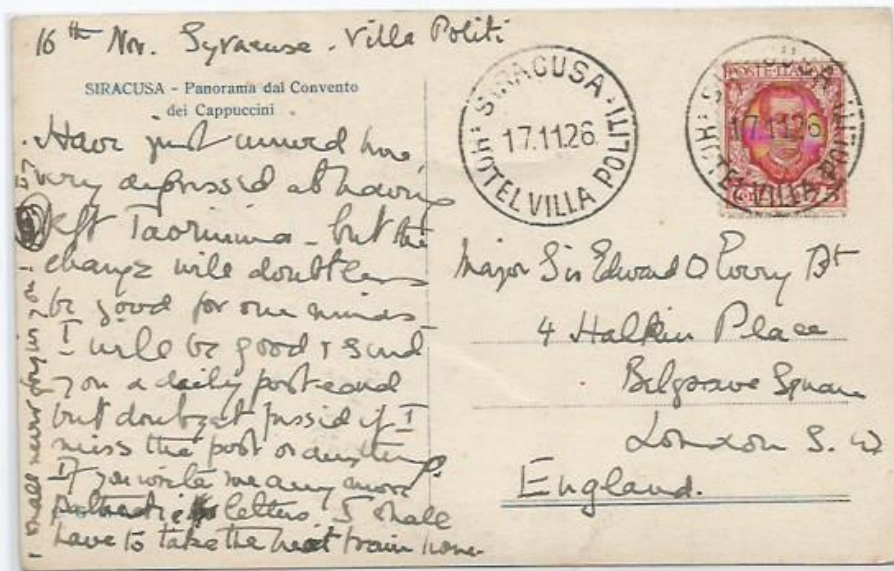 16th Nov. Syracuse. Villa Politi
SIRACUSA - Panorama dal Convento
dei Cappuccini
Have just arrived here
very depressed at having
left Taormina - but the
change will doubtless
be good for our minds -
I will be good & send
you a daily postcard
but don't get fussed if I
miss the post or anything.
If you write me any more
pathetic letters I shall
have to take the next train home.
I shall never
SIRACUSA
HOTEL VILLA POLITI
17.11.26
POSTE ITALIANE
SIRACUSA
17.11.26
HOTEL VILLA POLITI
Major Sir Edward O Bt
4 Halkin Place
Belgrave Square
London S.W
England.